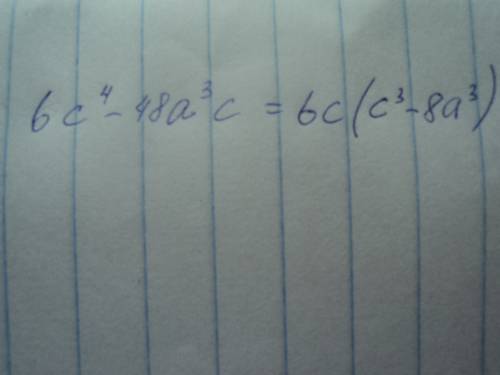 6c⁴ - 48a³c = 6c(c³ - 8a³)